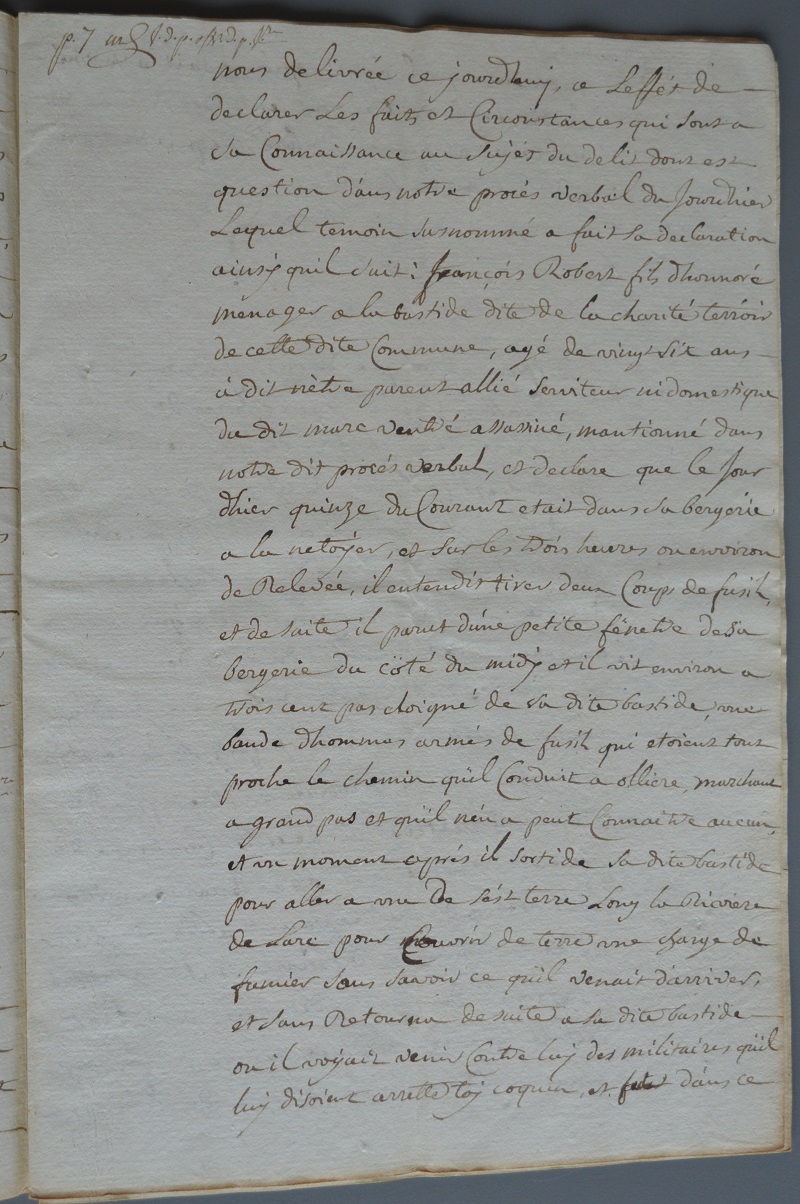 p. 7
nous delivrée ce jourdhuy, a Leffét de
declarer Les faits et Circonstances qui sont a
sa Connaissance au sujét du delit dont est
question dans notre procés verbal du Jourdhier
Lequel temoin susnommé a fait sa declaration
ainsÿ quil suit: françóis Robert fils dhonnoré
menager a la bastide dite de la charité terroir
de cette dite Commune, agé de vingt six ans
á dit nètre parent allié serviteur ni domestique
du dit marc assassiné, mantionné dans
notre dit procés verbal, et declare que le Jour
dhier quinze du Courant etait dans sa bergerie
a la netoÿer, et sur les trois heures ou environ
de Relevée, il entendit tirer deux Coups de fusil,
et de suite il parut dúne petite fënetre de sa
bergerie du côté du midÿ et il vit environ a
trois cent pas eloigné de sa dite bastide, une
bande dhommes armés de fusil qui etoient tout
proche le chemin qúil Conduit a olliere, marchant
a grand pas et qúil nén a peut Connaitre aucun,
et un moment aprés il sorti de sa dite bastide
pour aller a une de sést terre Long la Riviere
de Larc pour Couvrir de terre une charge de
fumier sans savoir ce qúil venait dárriver,
et sans Retourna de suite a sa dite bastide
ou il voyait venir Contre luy des militaires qúil
luy disoient arrette toy coquin, et dáns ce